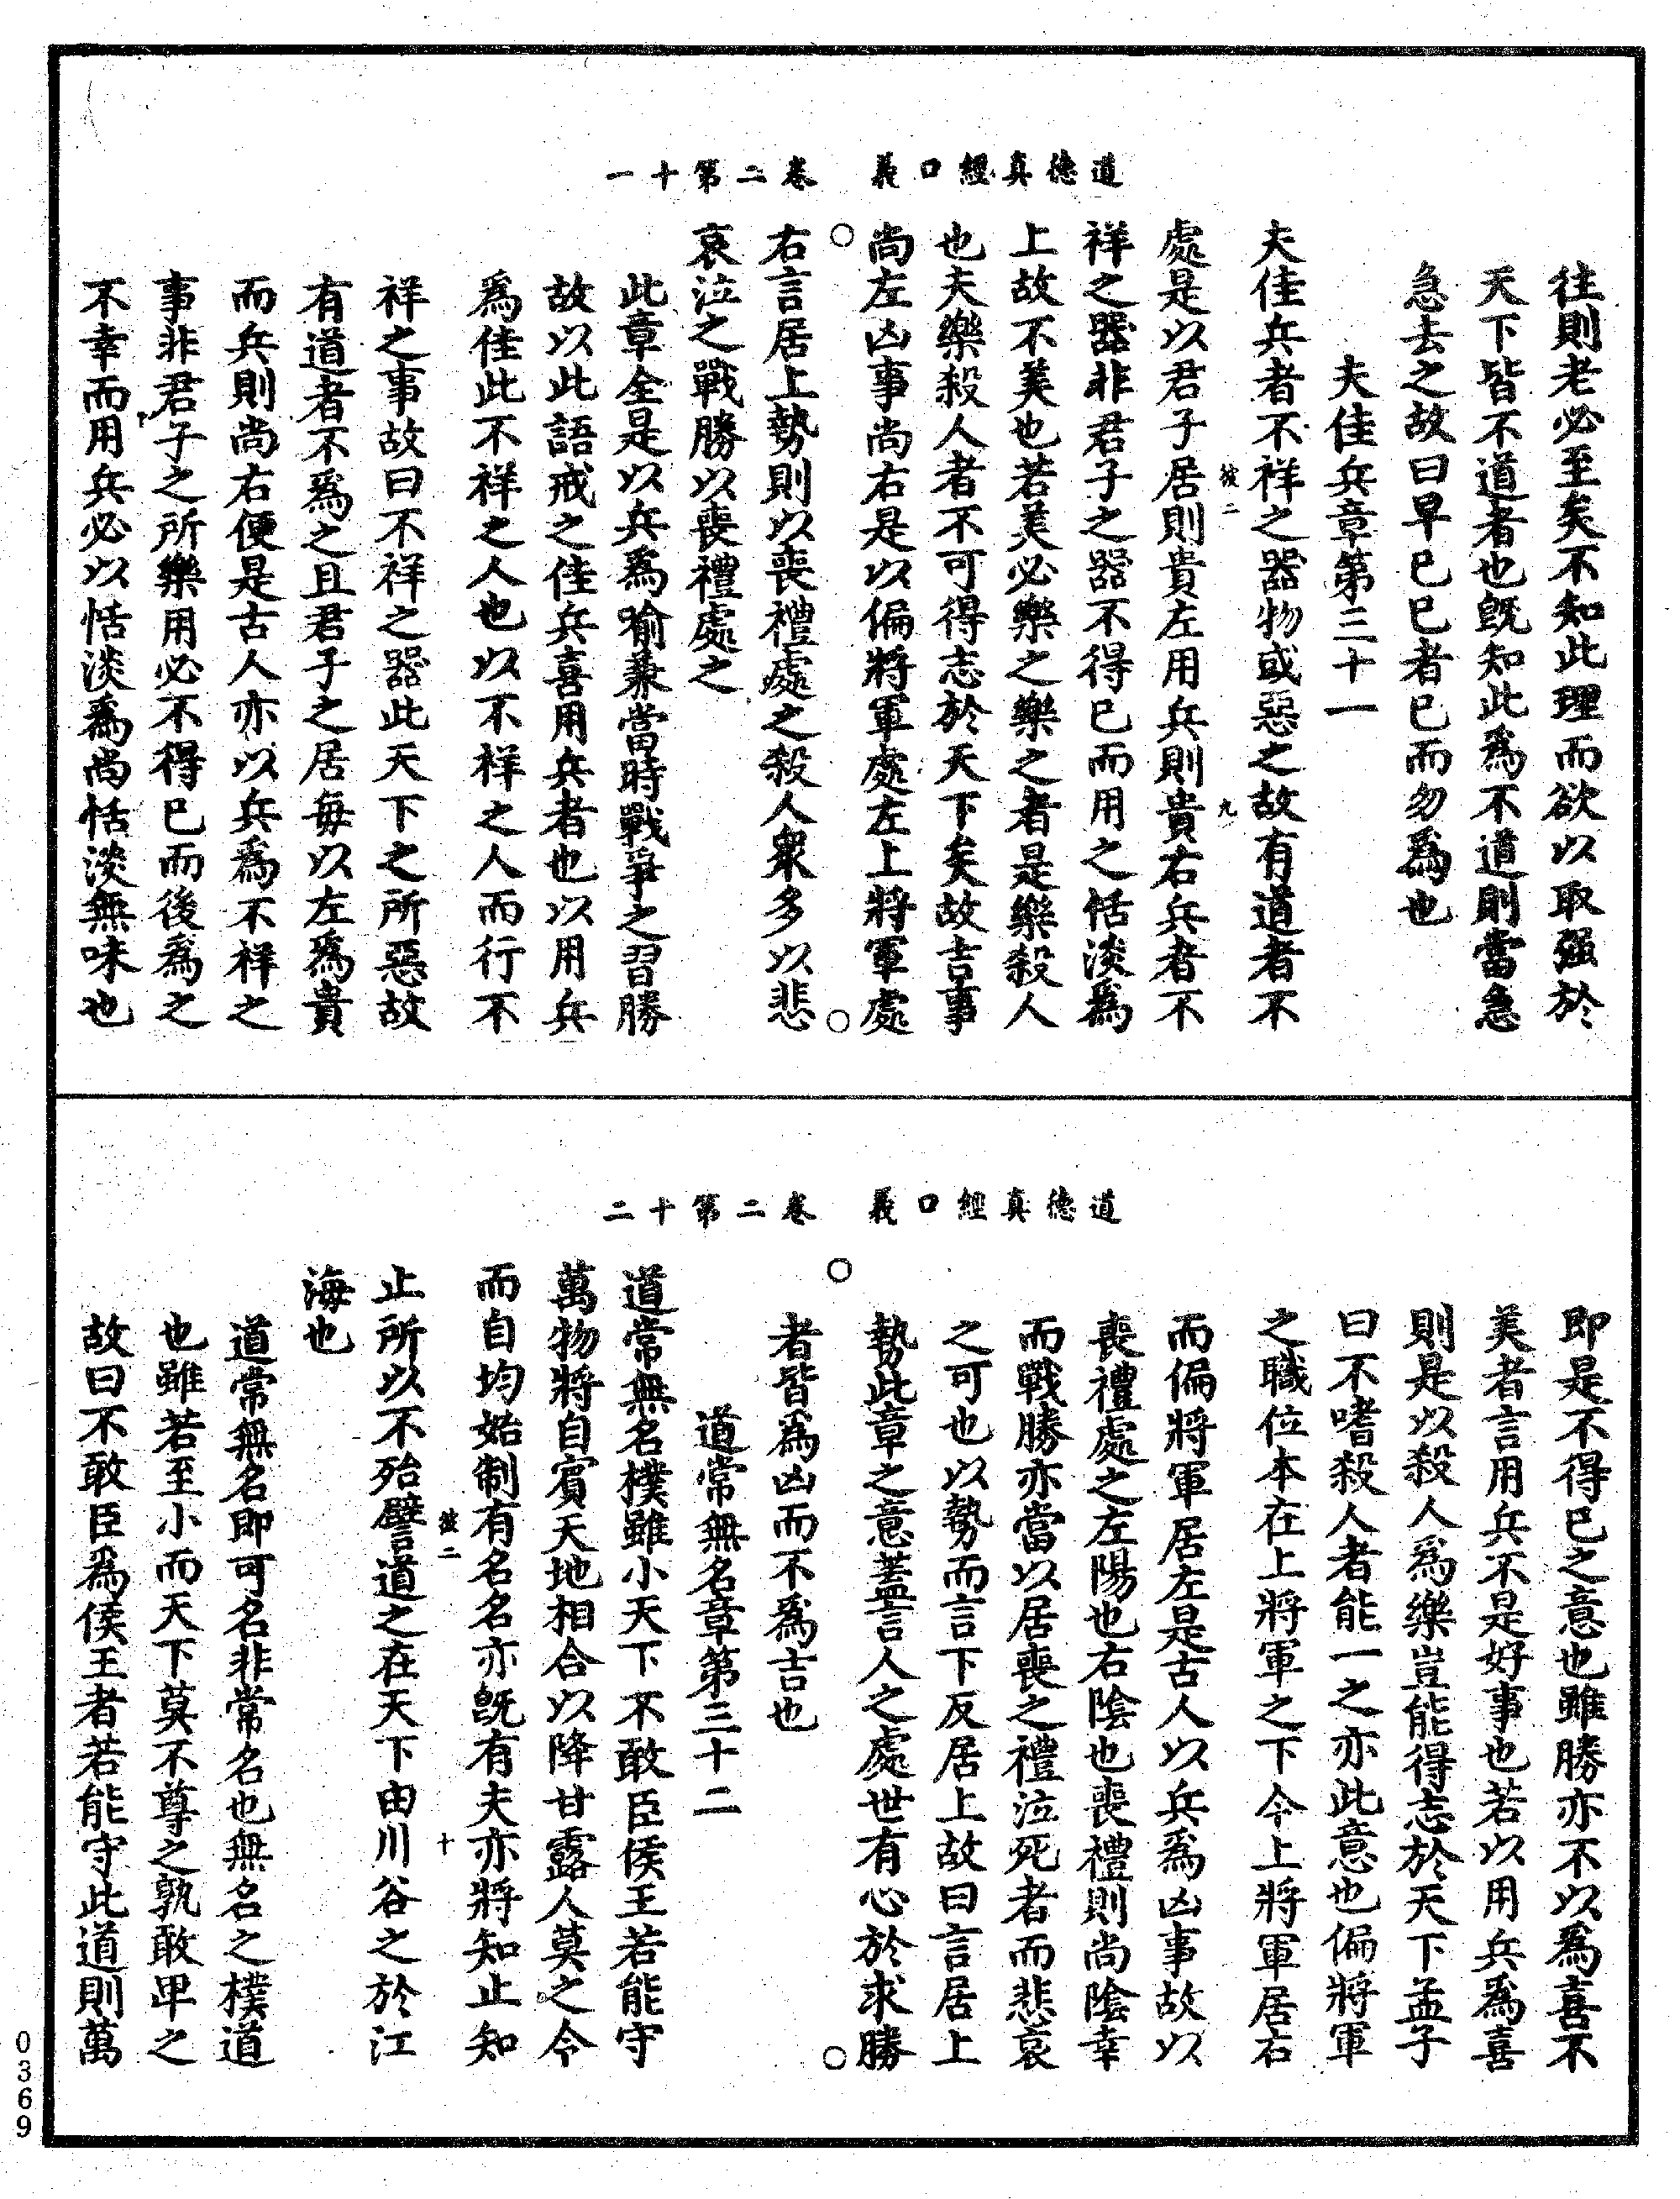 道德真經口義　卷二第十一
往則老必至矣不知此理而欲以取强於
天下皆不道者也旣知此爲不道則當急
急去之故曰早已已者已而勿爲也
夫佳兵章第三十一
夫佳兵者不祥之器物或惡之故有道者不
彼二　九
處是以君子居則貴左用兵則貴右兵者不
祥之器非君子之器不得已而用之恬淡爲
上故不美也若美必樂之樂之者是樂殺人
也夫樂殺人者不可得志於天下矣故吉事
尚左凶事尚右是以偏將軍處左上將軍處
○　○
右言居上勢則以喪禮處之殺人衆多以悲
哀泣之戰勝以喪禮處之
此章全是以兵爲喻兼當時戰爭之習勝
故以此語戒之佳兵喜用兵者也以用兵
爲佳此不祥之人也以不祥之人而行不
祥之事故曰不祥之器此天下之所惡故
有道者不爲之且君子之居每以左爲貴
而兵則尚右便是古人亦以兵爲不祥之
事非君子之所樂用必不得已而後爲之
不幸而用兵必以恬淡爲尚恬淡無味也
道德真經口義　卷二第十二
即是不得已之意也雖勝亦不以爲喜不
美者言用兵不是好事也若以用兵爲喜
則是以殺人爲樂豈能得志於天下孟子
曰不嗜殺人者能一之亦此意也偏將軍
之職位本在上將軍之下今上將軍居右
而偏將軍居左是古人以兵爲凶事故以
喪禮處之左陽也右陰也喪禮則尚陰幸
而戰勝亦當以居喪之禮泣死者而悲哀
之可也以勢而言下反居上故曰言居上
勢此章之意蓋言人之處世有心於求勝
○　○
者皆爲凶而不爲吉也
道常無名章第三十二
道常無名樸雖小天下不敢臣侯王若能守
萬物將自賓天地相合以降甘露人莫之令
而自均始制有名名亦旣有夫亦將知止知
彼二　十
止所以不殆譬道之在天下由川谷之於江
海也
道常無名即可名非常名也無名之樸道
也雖若至小而天下莫不尊之孰敢卑之
故曰不敢臣爲侯王者若能守此道則萬
0369